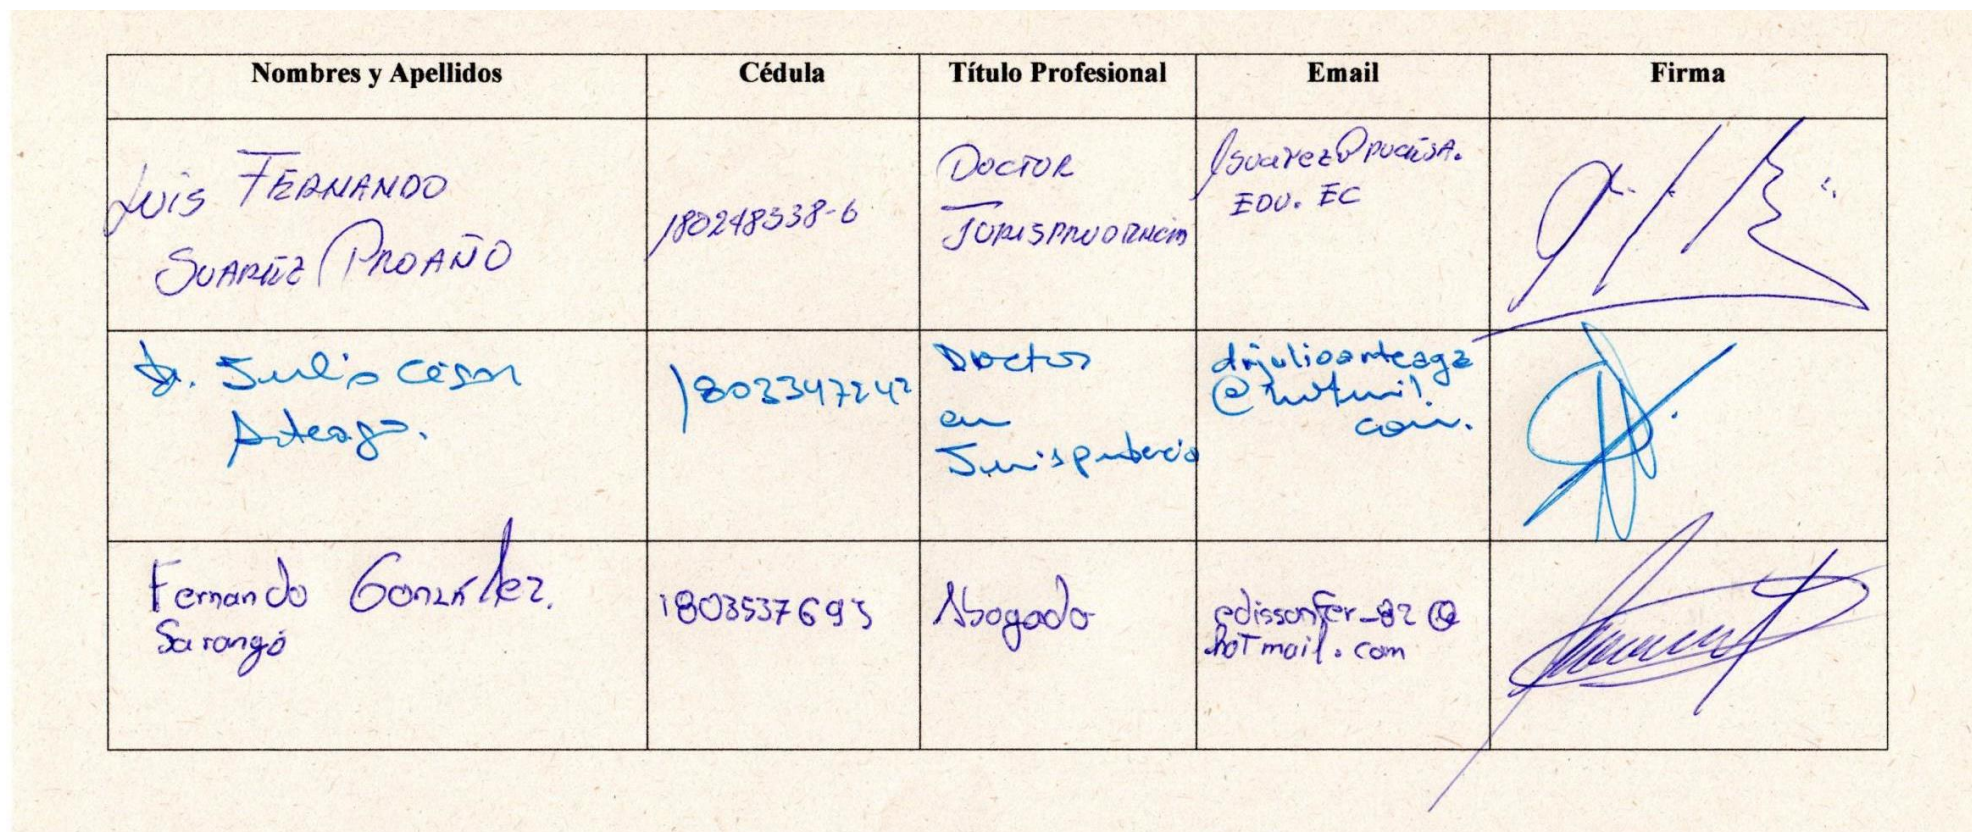 Nombres y Apellidos Cédula Título Profesional Email Firma
Luis FERNANDO
SUAREZ PROAÑO
180248338-6
DOCTOR
JURISPRUDENCIA
lsuarez@pucesa.
EDU. EC
Dr. Julio César
Arteaga.
1803347242
Doctor
en
Jurisprudencia
drjulioarteaga
@hotmail.
com.
Fernando González.
Sarango
1803537693
Abogado
edissonfer_82@
hotmail.com